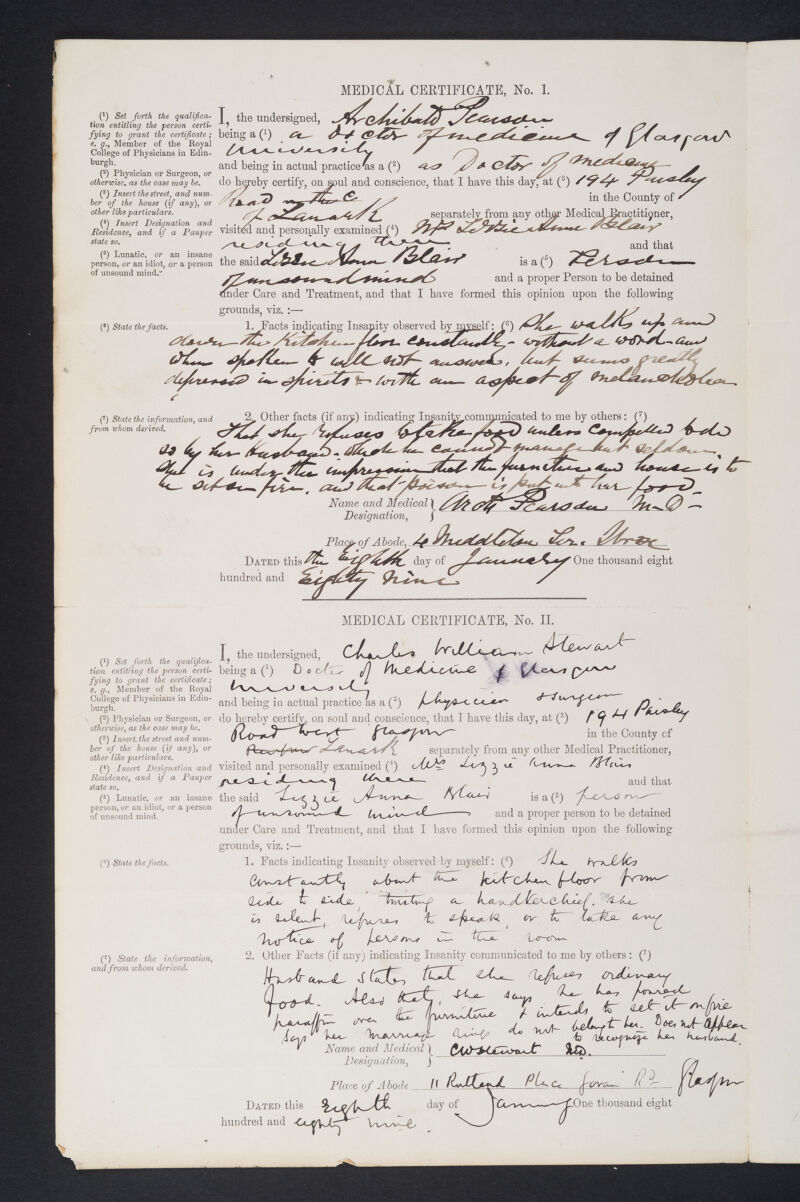 MEDICAL CERTIFICATE, No. I.
(1) Set forth the qualifica-
tion entitling the person certi-
fying to grant the certificate;
e. g., Member of the Royal
College of Physicians in Edin-
burgh.
(2) Physician or Surgeon, or
otherwise, as the case may be.
(3) Insert the street, and num-
ber of the house (if any), or
other like particulars.
(4) Insert Designation and
Residence, and if a Pauper
state so.
(5) Lunatic, or an insane
person, or an idiot, or a person
of unsound mind."
I, the undersigned, Archibald Pearson
being a (1) a Doctor of medicine of Glasgow
University
and being in actual practice as a (2) as Doctor of medicine
do hereby certify, on soul and conscience, that I have this day, at (3) 194 Paisley
Road in the C in the County of
of Lanark separately from any other Medical Practitioner,
visited and personally examined (4) Mrs Lizzie Anne Blair
residing there and that
the said Lizzie Anne Blair is a (5) Person
of unsound mind and a proper Person to be detained
under Care and Treatment, and that I have formed this opinion upon the following
grounds, viz. :—
(6) State the facts.
1. Facts indicating Insanity observed by myself: (6) She walks up and
down the Kitchen floor constantly - without a word - and
when spoken to will not answer, but seems greatly
depressed in spirits - with an aspect of melancholia
(7) State the information, and
from whom derived.
2. Other facts (if any) indicating Insanity communicated to me by others: (7)
That she refuses to take food unless compelled to do
so by her Husband - which he cannot manage but seldom.
She is under the impression that the furniture and house is to
be set on fire. and that poison is put into her food -
Name and Medical Designation, } Arch Pearson M-D-
Place of Abode, 4 Middleton Ter.
DATED this the Eighth day of January One thousand eight
hundred and Eighty Nine
MEDICAL CERTIFICATE, No. II.
(1) Set forth the qualifica-
tion entitling the person certi-
fying to grant the certificate;
e. g., Member of the Royal
College of Physicians in Edin-
burgh.
(2) Physician or Surgeon, or
otherwise, as the case may be.
(3) Insert the street and num-
ber of the house (if any), or
other like particulars.
(4) Insert Designation and
Residence, and if a Pauper
state so.
(5) Lunatic, or an insane
person, or an idiot, or a person
of unsound mind.
I, the undersigned, Charles William Stewart
being a (1) Doctor of Medicine of Glasgow
University
and being in actual practice as a (2) physician & surgeon
do hereby certify, on soul and conscience, that I have this day, at (3) 194 Paisley
Road West Glasgow in the County of
Lanark separately from any other Medical Practitioner,
visited and personally examined (4) Mrs Lizzie Anna Blair
residing there and that
the said Lizzie Anna Blair is a (5) person
of unsound mind and a proper person to be detained
under Care and Treatment, and that I have formed this opinion upon the following
grounds, viz. :—
(6) State the facts.
1. Facts indicating Insanity observed by myself: (6) She walks
constantly about the kitchen floor from
side to side, twisting a handkerchief. She
is silent, refuses to speak, or to take any
notice of persons in the room
(7) State the information,
and from whom derived.
2. Other Facts (if any) indicating Insanity communicated to me by others: (7)
Husband states that she refuses ordinary
food. Also that, she says he has poured
paraffin over the furniture & intends to set it on fire
Says her marriage rings do not belong to her. Does not appear
to recognize her husband.
Name and Medical Designation, } CW Stewart MD.
Place of Abode 11 Rutland Place Govan Rd Glasgow
DATED this Eighth day of January One thousand eight
hundred and eighty nine.